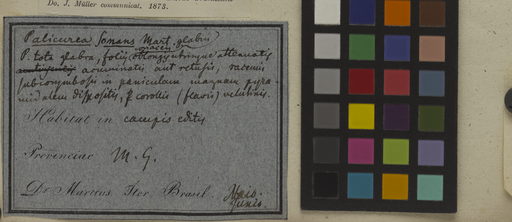 Do. J. Müller communicat. 1873.
Palicurea sonans Mart. glabra
P. tota glabra, foliis oblongis utrinque attenuatis
acuminatis aut retusis, racemis
subcorymbosis in paniculam magnam pyra-
midalem dispositis, corollis (flavis) velutinis.
Habitat in campis editis
Provinciae M. G.
Dr. Martius Iter Brasil. Majo.
Junio.